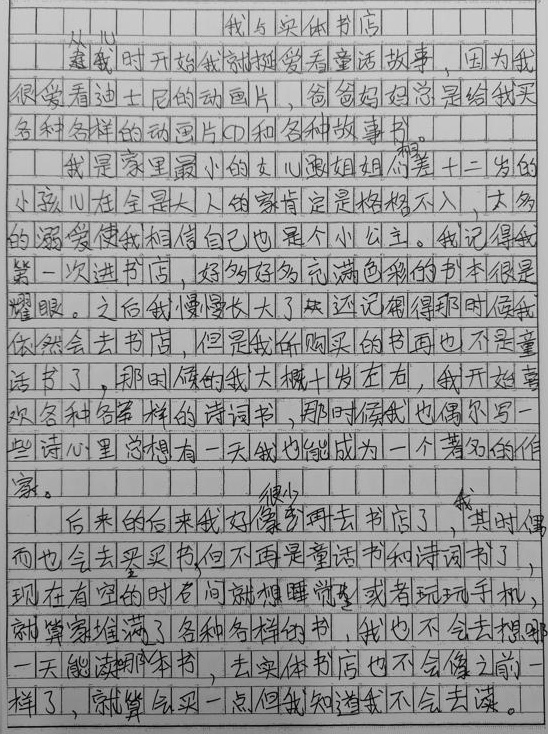 我与实体书店
从儿时开始我就挺爱看童话故事，因为我
很爱看迪士尼的动画片，爸爸妈妈总是给我买
各种各样的动画片CD和各种故事书。
我是家里最小的女儿跟姐姐相差十二岁的
小孩儿在全是大人的家肯定是格格不入，太多
的溺爱使我相信自己也是个小公主。我记得我
第一次进书店，好多好多充满色彩的书本很是
耀眼。之后我慢慢长大了还记得那时候我
依然会去书店，但是我所购买的书再也不是童
话书了，那时候的我大概十岁左右，我开始喜
欢各种各样的诗词书，那时候我也偶尔写一
些诗心里总想有一天我也能成为一个著名的作
家。
后来的后来我好像很少再去书店了，我其时偶
而也会去买书，但不再是童话书和诗词书了，
现在有空的时间就想睡觉或者玩玩手机，
就算家堆满了各种各样的书，我也不会去想哪
一天能读哪本书，去实体书店也不会像之前一
样了，就算会买一点但我知道我不会去读。